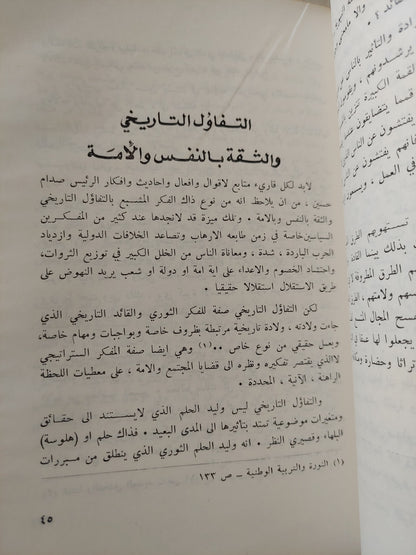 التفاؤل التاريخي
والثقة بالنفس والأمة
لابد لكل قاريء متابع لاقوال وافعال واحاديث وافكار الرئيس صدام
حسين ، من ان يلاحظ انه من نوع ذاك الفكر المشبع بالتفاؤل التاريخي
والثقة بالنفس وبالامة . وتلك ميزة قد لانجدها عند كثير من المفكرين
السياسيين خاصة في زمن طابعه الارهاب وتصاعد الخلافات الدولية وازدياد
الحرب الباردة ، شدة ، ومعاناة الناس من الخلل الكبير في توزيع الثروات،
واحتشاد الخصوم والاعداء على اية امة او دولة او شعب يريد النهوض على
طريق الاستقلال استقلالا حقيقيا .
لكن التفاؤل التاريخي صفة للفكر الثوري والقائد التاريخي الذي
جاءت ولادته ، ولادة تاريخية مرتبطة بظروف خاصة وبواجبات ومهام خاصة،
وبعمل حقيقي من نوع خاص ..(١) وهي ايضا صفة المفكر الستراتيجي
لاالذي يقتصر تفكيره ونظره الى قضايا المجتمع والامة ، على معطيات اللحظة
الراهنة ، الآنية ، المحددة .
والتفاؤل التاريخي ليس وليد الحلم الذي لايستند الى حقائق
ومتغيرات موضوعية تستد بتأثيرها الى المدى البعيد . فذاك حلم او (هلوسة)
البلهاء وقصيري النظر . انه وليد الحلم الثوري الذي ينطلق من مبررات
(١) الثورة والتربية الوطنية – ص ١٣٣
٤٥